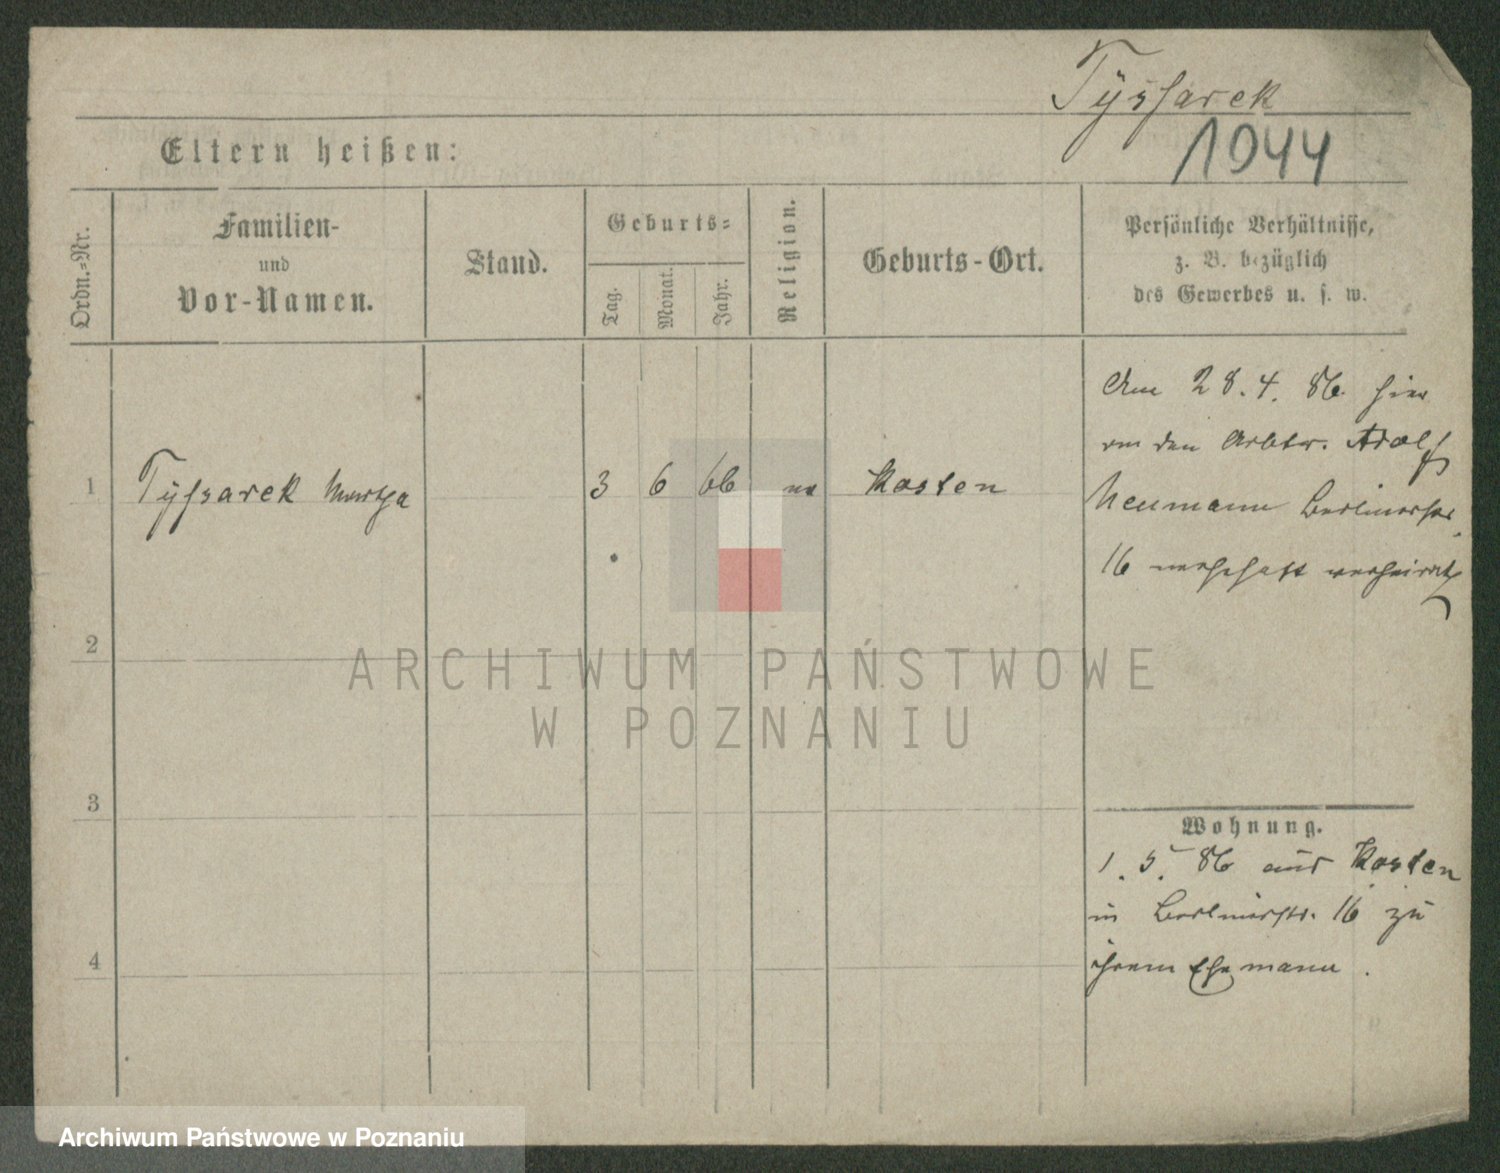 Tyssarek
1044
Eltern heißen:
Ordn.-Nr.
Familien-
und
Vor-Namen.
Stand.
Geburts-
Tag.
Monat.
Jahr.
Religion.
Geburts-Ort.
Persönliche Verhältnisse,
z. B. bezüglich
des Gewerbes u. s. w.
Am 28. 4. 86. hier
den Arbtr. Adolf
1 Tyssarek 3 6 66 Kosten
Neumann Berlinerstr.
16 wohnhaft verheirath
2
ARCHIWUM PAŃSTWOWE
W POZNANIU
3
Wohnung.
1. 5. 86 aus Kosten
in Berlinerstr. 16 zu
4
ihrem Ehemann.
Archiwum Państwowe w Poznaniu